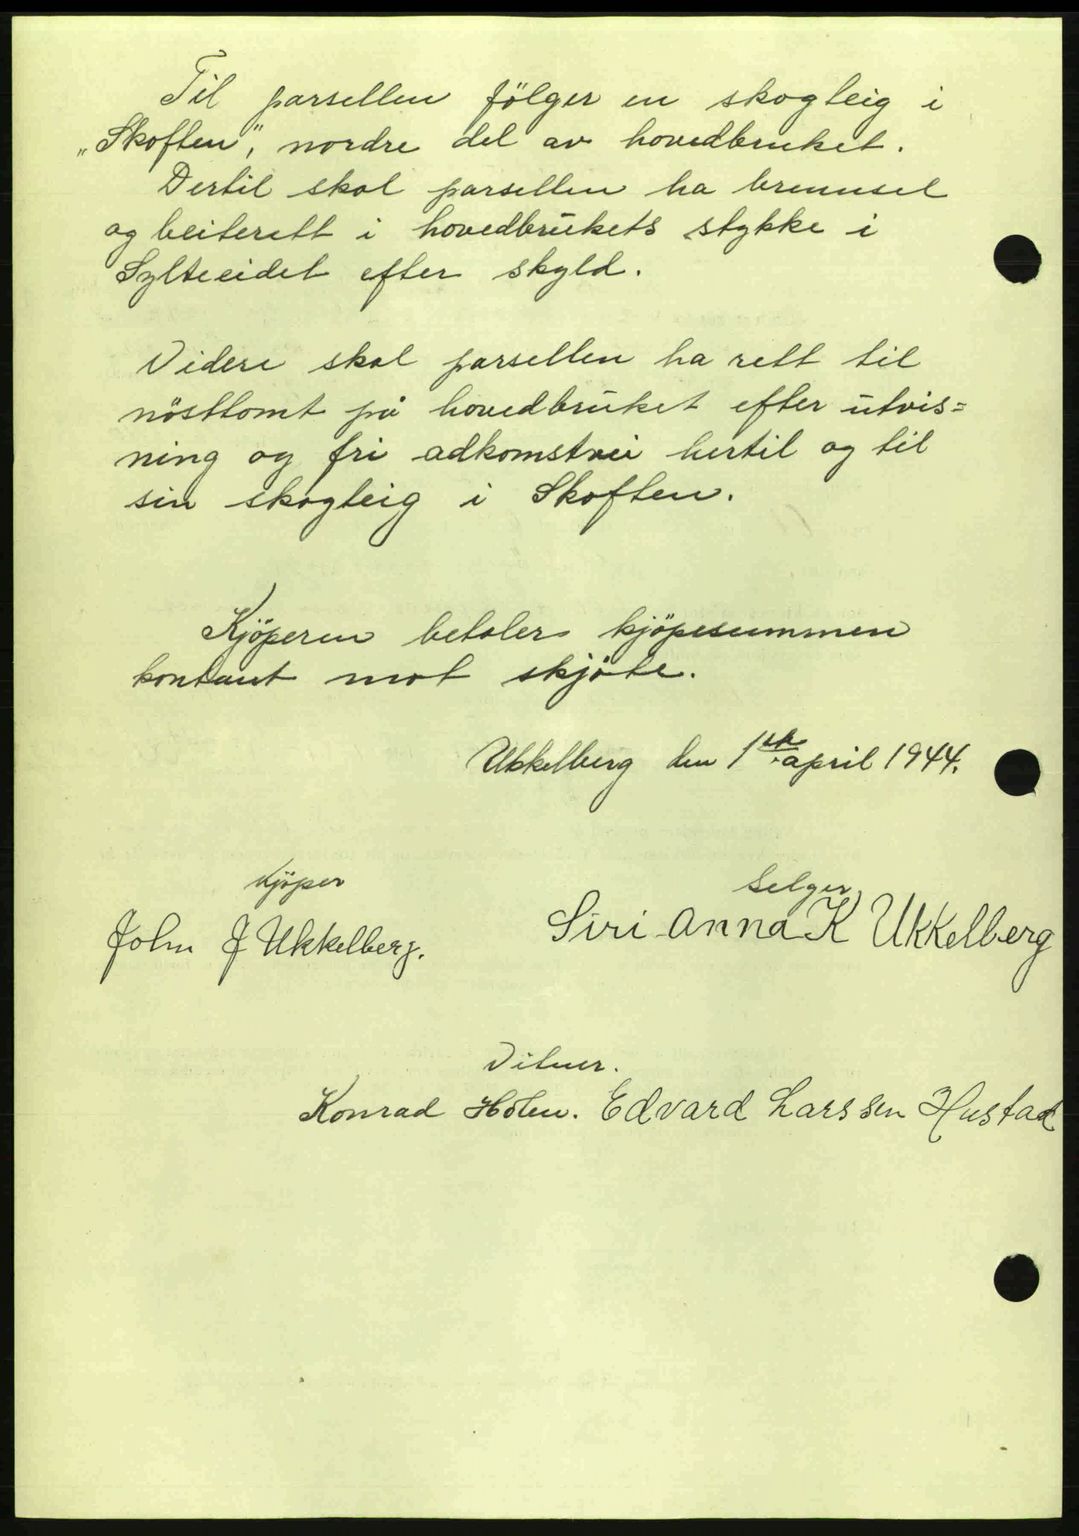 Til parsellen følger en skogteig i
„Skoften", nordre del av hovedbruket.
Dertil skal parsellen ha brennsel
og beiterett i hovedbrukets stykke i
Sylteeidet efter skyld.
Videre skal parsellen ha rett til
nösttomt på hovedbruket efter utvis=
ning og fri adkomstvei hertil og til
sin skogteig i Skoften.
Kjöperen betaler kjöpesummen
kontant mot skjöte.
Ukkelberg den 1ste april 1944.
Kjöper
Selger
John J Ukkelberg.
Siri Anna K Ukkelberg
Vitner.
Konrad Holen. Edvard Larssen Hustad